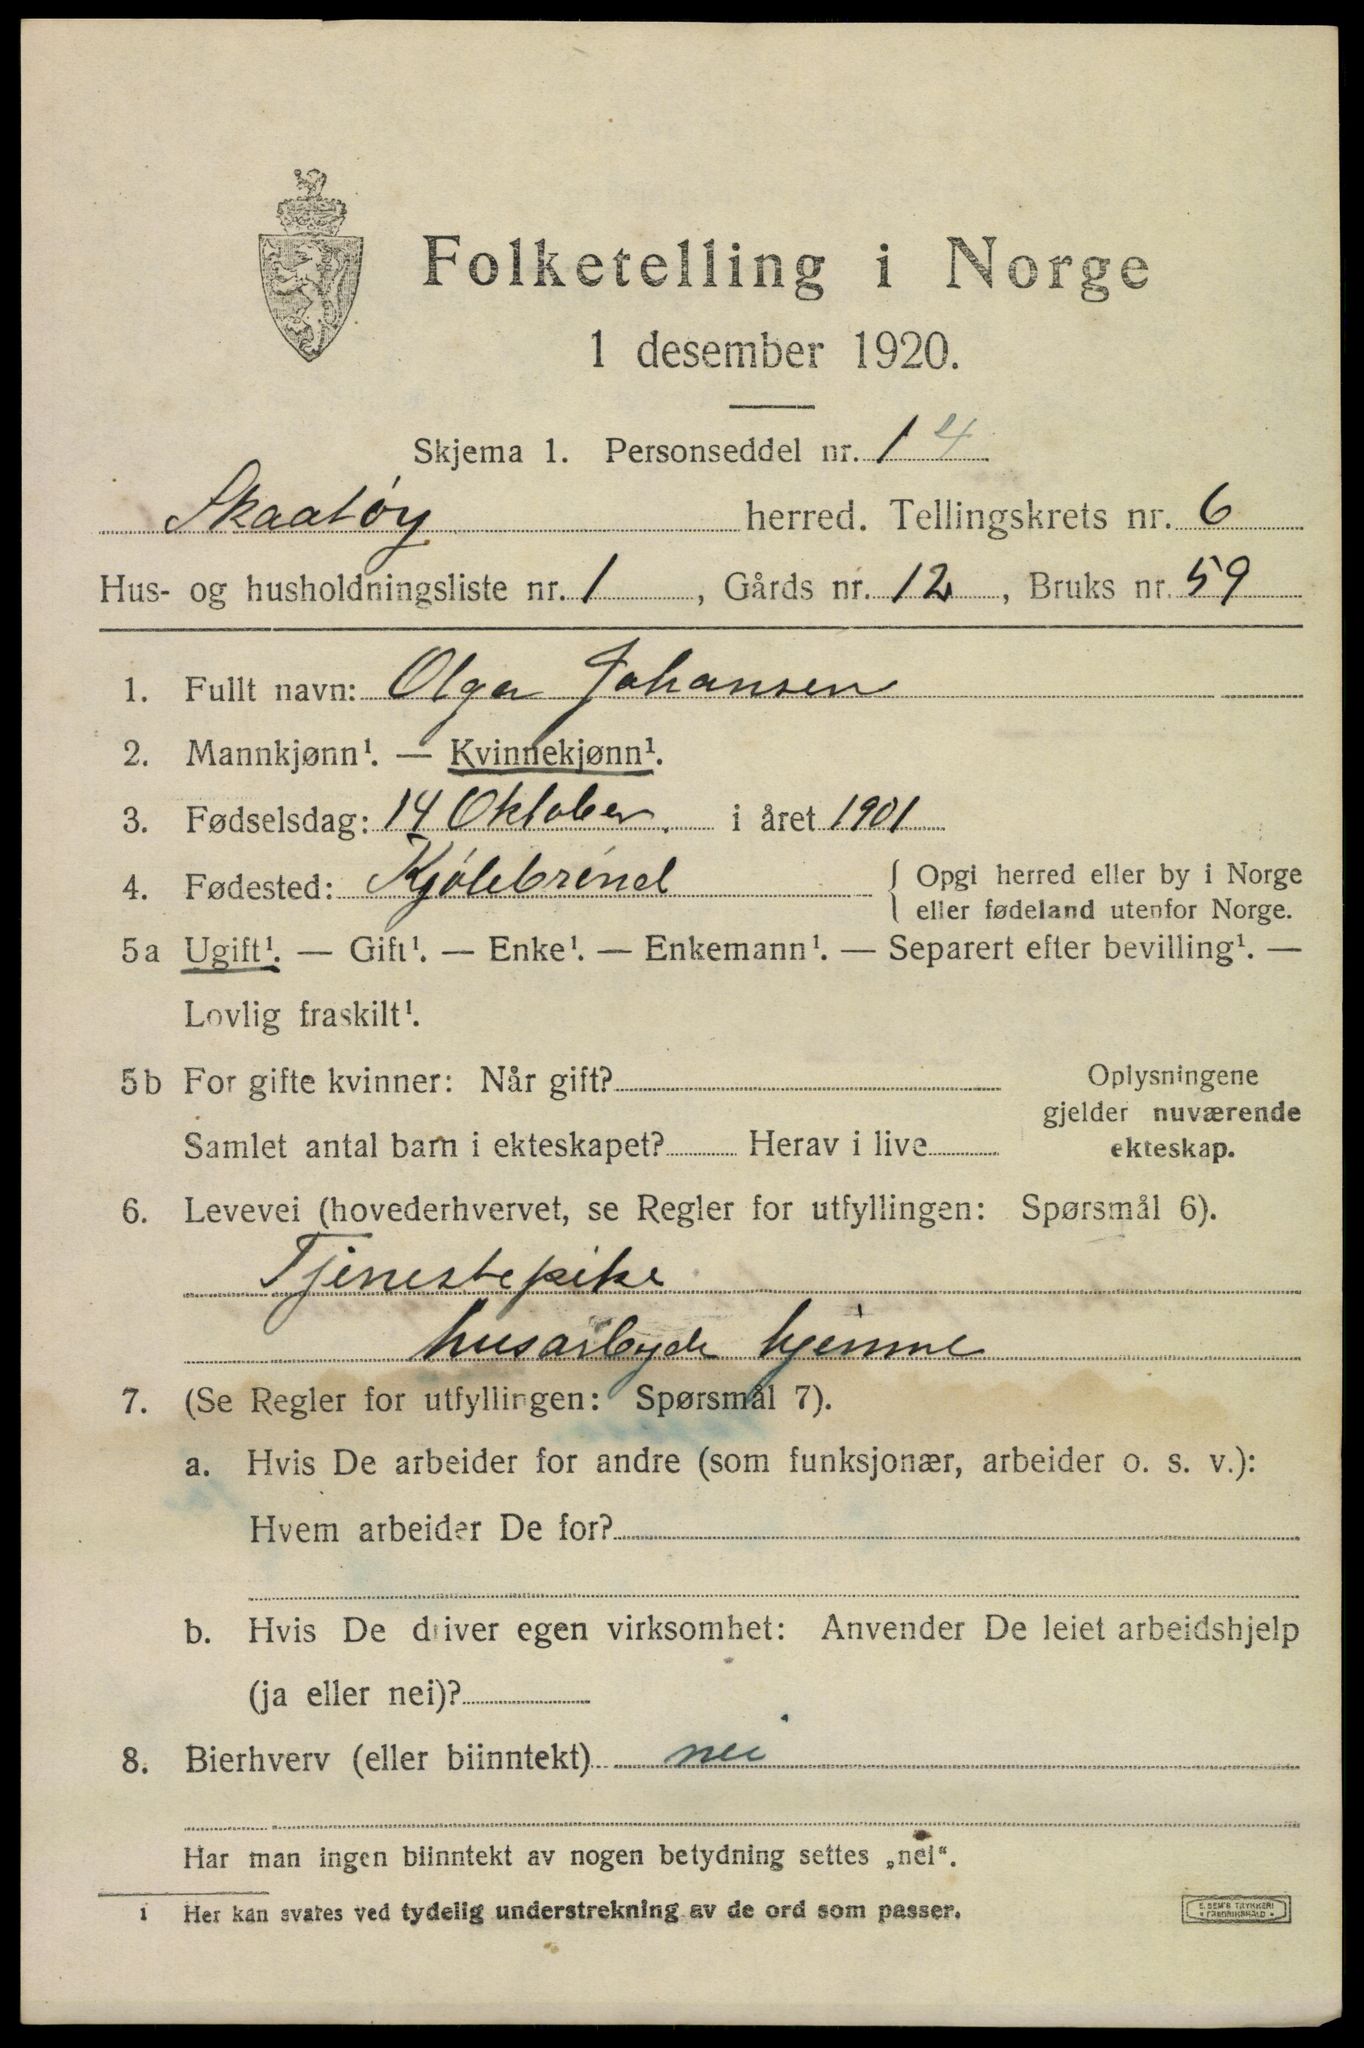 Folketelling i Norge
1 desember 1920.
Skjema 1. Personseddel nr. 1 4
Skaatøy herred. Tellingskrets nr. 6
Hus- og husholdningsliste nr. 1, Gårds nr. 12, Bruks nr. 59
1. Fullt navn: Olga Johansen
2. Mannkjønn¹. — Kvinnekjønn¹.
3. Fødselsdag: 14 Oktober. i året 1901
4. Fødested: Kjølebrønd { Opgi herred eller by i Norge
eller fødeland utenfor Norge.
5a Ugift¹. — Gift¹. — Enke¹. — Enkemann¹. — Separert efter bevilling¹. —
Lovlig fraskilt¹.
5b For gifte kvinner: Når gift?
Samlet antal barn i ekteskapet? Herav i live
Oplysningene
gjelder nuværende
ekteskap.
6. Levevei (hovederhvervet, se Regler for utfyllingen: Spørsmål 6).
Tjenestepike
husarbyde hjemme
7. (Se Regler for utfyllingen: Spørsmål 7).
a. Hvis De arbeider for andre (som funksjonær, arbeider o. s. v.):
Hvem arbeider De for?
b. Hvis De driver egen virksomhet: Anvender De leiet arbeidshjelp
(ja eller nei)?
8. Bierhverv (eller biinntekt) nei
Har man ingen biinntekt av nogen betydning settes „nei“.
1 Her kan svares ved tydelig understrekning av de ord som passer.
E. SEM'S TRYKKERI
FREDRIKSHALD